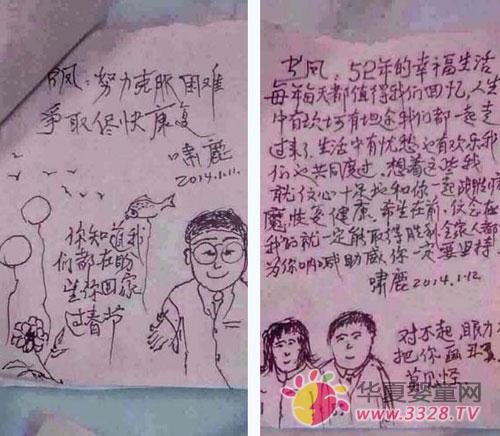 凤:努力克服困难
争取侭快康复
啸鹿
2014.1.11.
你知道我
们都在盼
望你回家
过春节
凤:52年的幸福生活
每年每天都值得我们回忆人生
中有坎坷有坦途我们都一起走
过来了.生活中有忧愁也有欢乐我
们也共同度过.想着这些我
就信心十足地和你一起战胜病
魔恢复健康.希望在前,信念在
我们就一定能取得胜利全家人都
为你呐喊助威你一定要坚持.
啸鹿 2014.1.12
对不起 眼力
把你画丑了
莫见怪
华夏婴童网
www.3328.TV